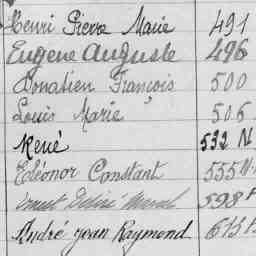 Henri Pierre Marie 491
Eugène Auguste 496
Donatien François 500
Louis Marie 506
René 532 N
Eléonor Constant 555 N
Ernest Désiré 598
André Jean Raymond 615